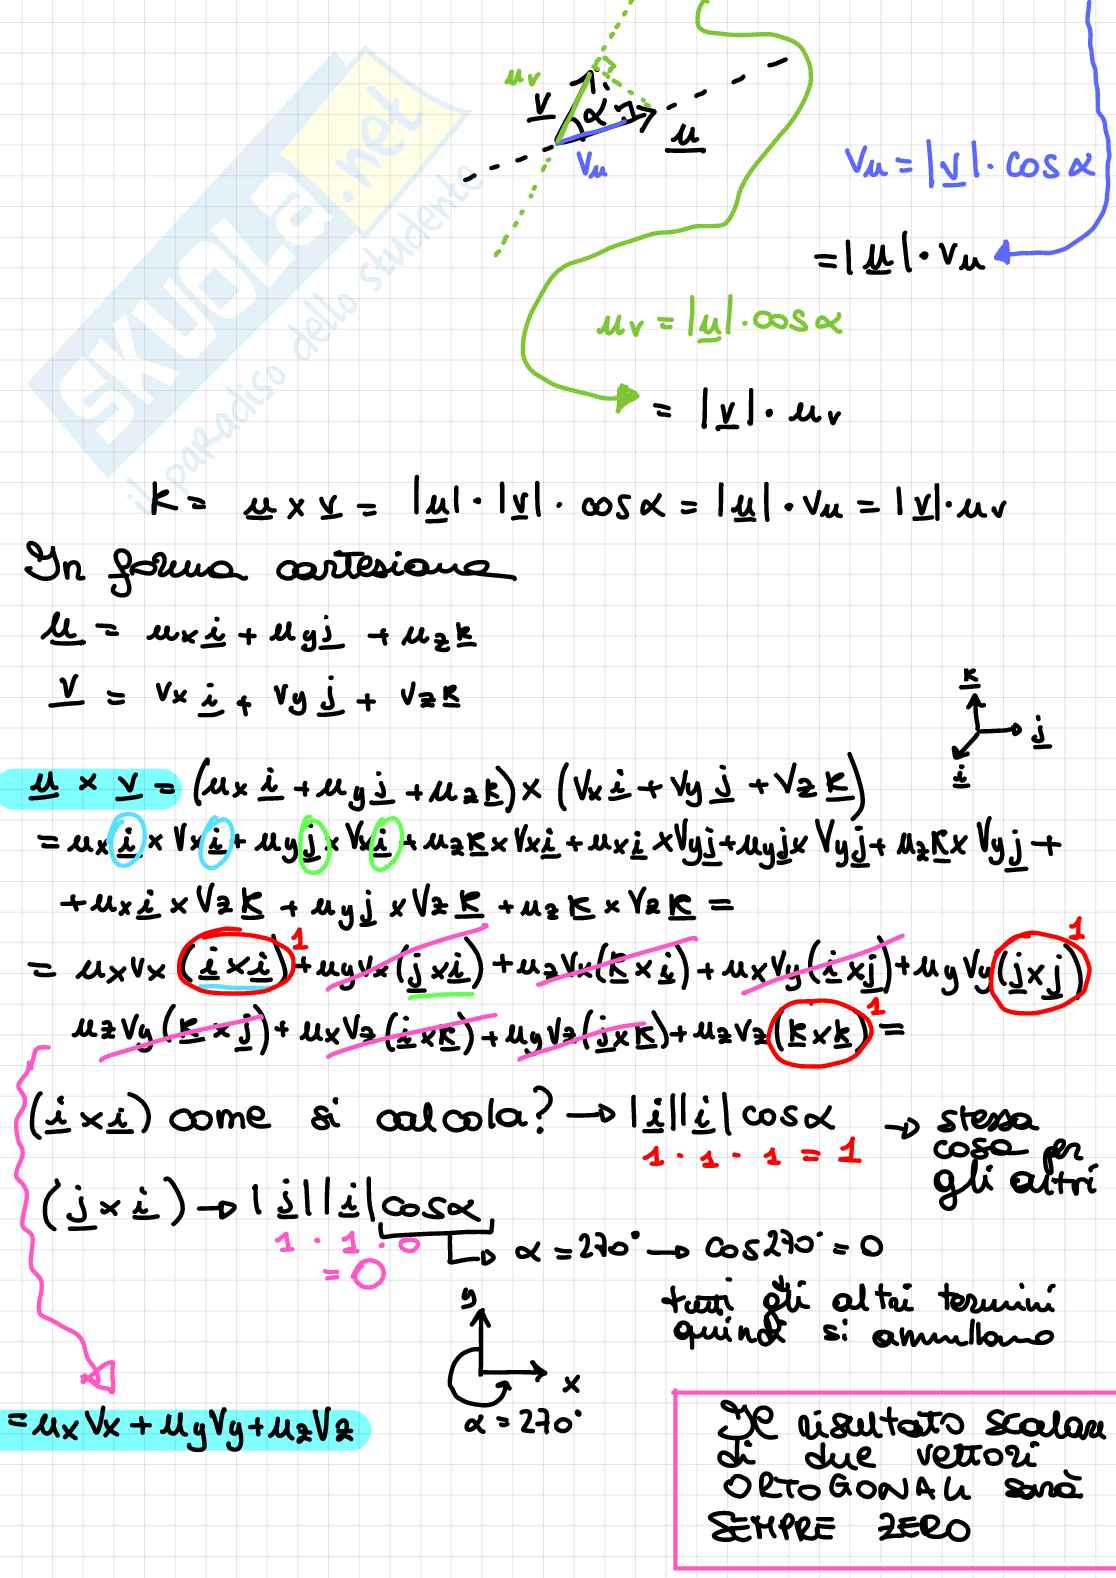 u_v
v
α
u
v_u
v_u = |v| · cos α
= |u| · v_u
u_v = |u| · cos α
= |v| · u_v
SKUOLA.net
il paradiso dello studente
k = u × v = |u| · |v| · cos α = |u| · v_u = |v| · u_v
In forma cartesiana
u = u_x i + u_y j + u_z k
v = v_x i + v_y j + v_z k
k
j
i
u × v = (u_x i + u_y j + u_z k) × (v_x i + v_y j + v_z k)
= u_x i × v_x i + u_y j × v_x i + u_z k × v_x i + u_x i × v_y j + u_y j × v_y j + u_z k × v_y j +
+ u_x i × v_z k + u_y j × v_z k + u_z k × v_z k =
= u_x v_x (i × i) 1 + u_y v_x (j × i) + u_z v_x (k × i) + u_x v_y (i × j) + u_y v_y (j × j) 1
u_z v_y (k × j) + u_x v_z (i × k) + u_y v_z (j × k) + u_z v_z (k × k) 1 =
(i × i) come si calcola? → |i||i| cos α → stessa
cosa per
gli altri
1 · 1 · 1 = 1
(j × i) → |j||i| cos α
1 · 1 · 0
= 0
→ α = 270° → cos 270° = 0
tutti gli altri termini
quindi si annullano
y
x
α = 270°
= u_x v_x + u_y v_y + u_z v_z
Il risultato scalare
di due vettori
ORTOGONALI sarà
SEMPRE ZERO